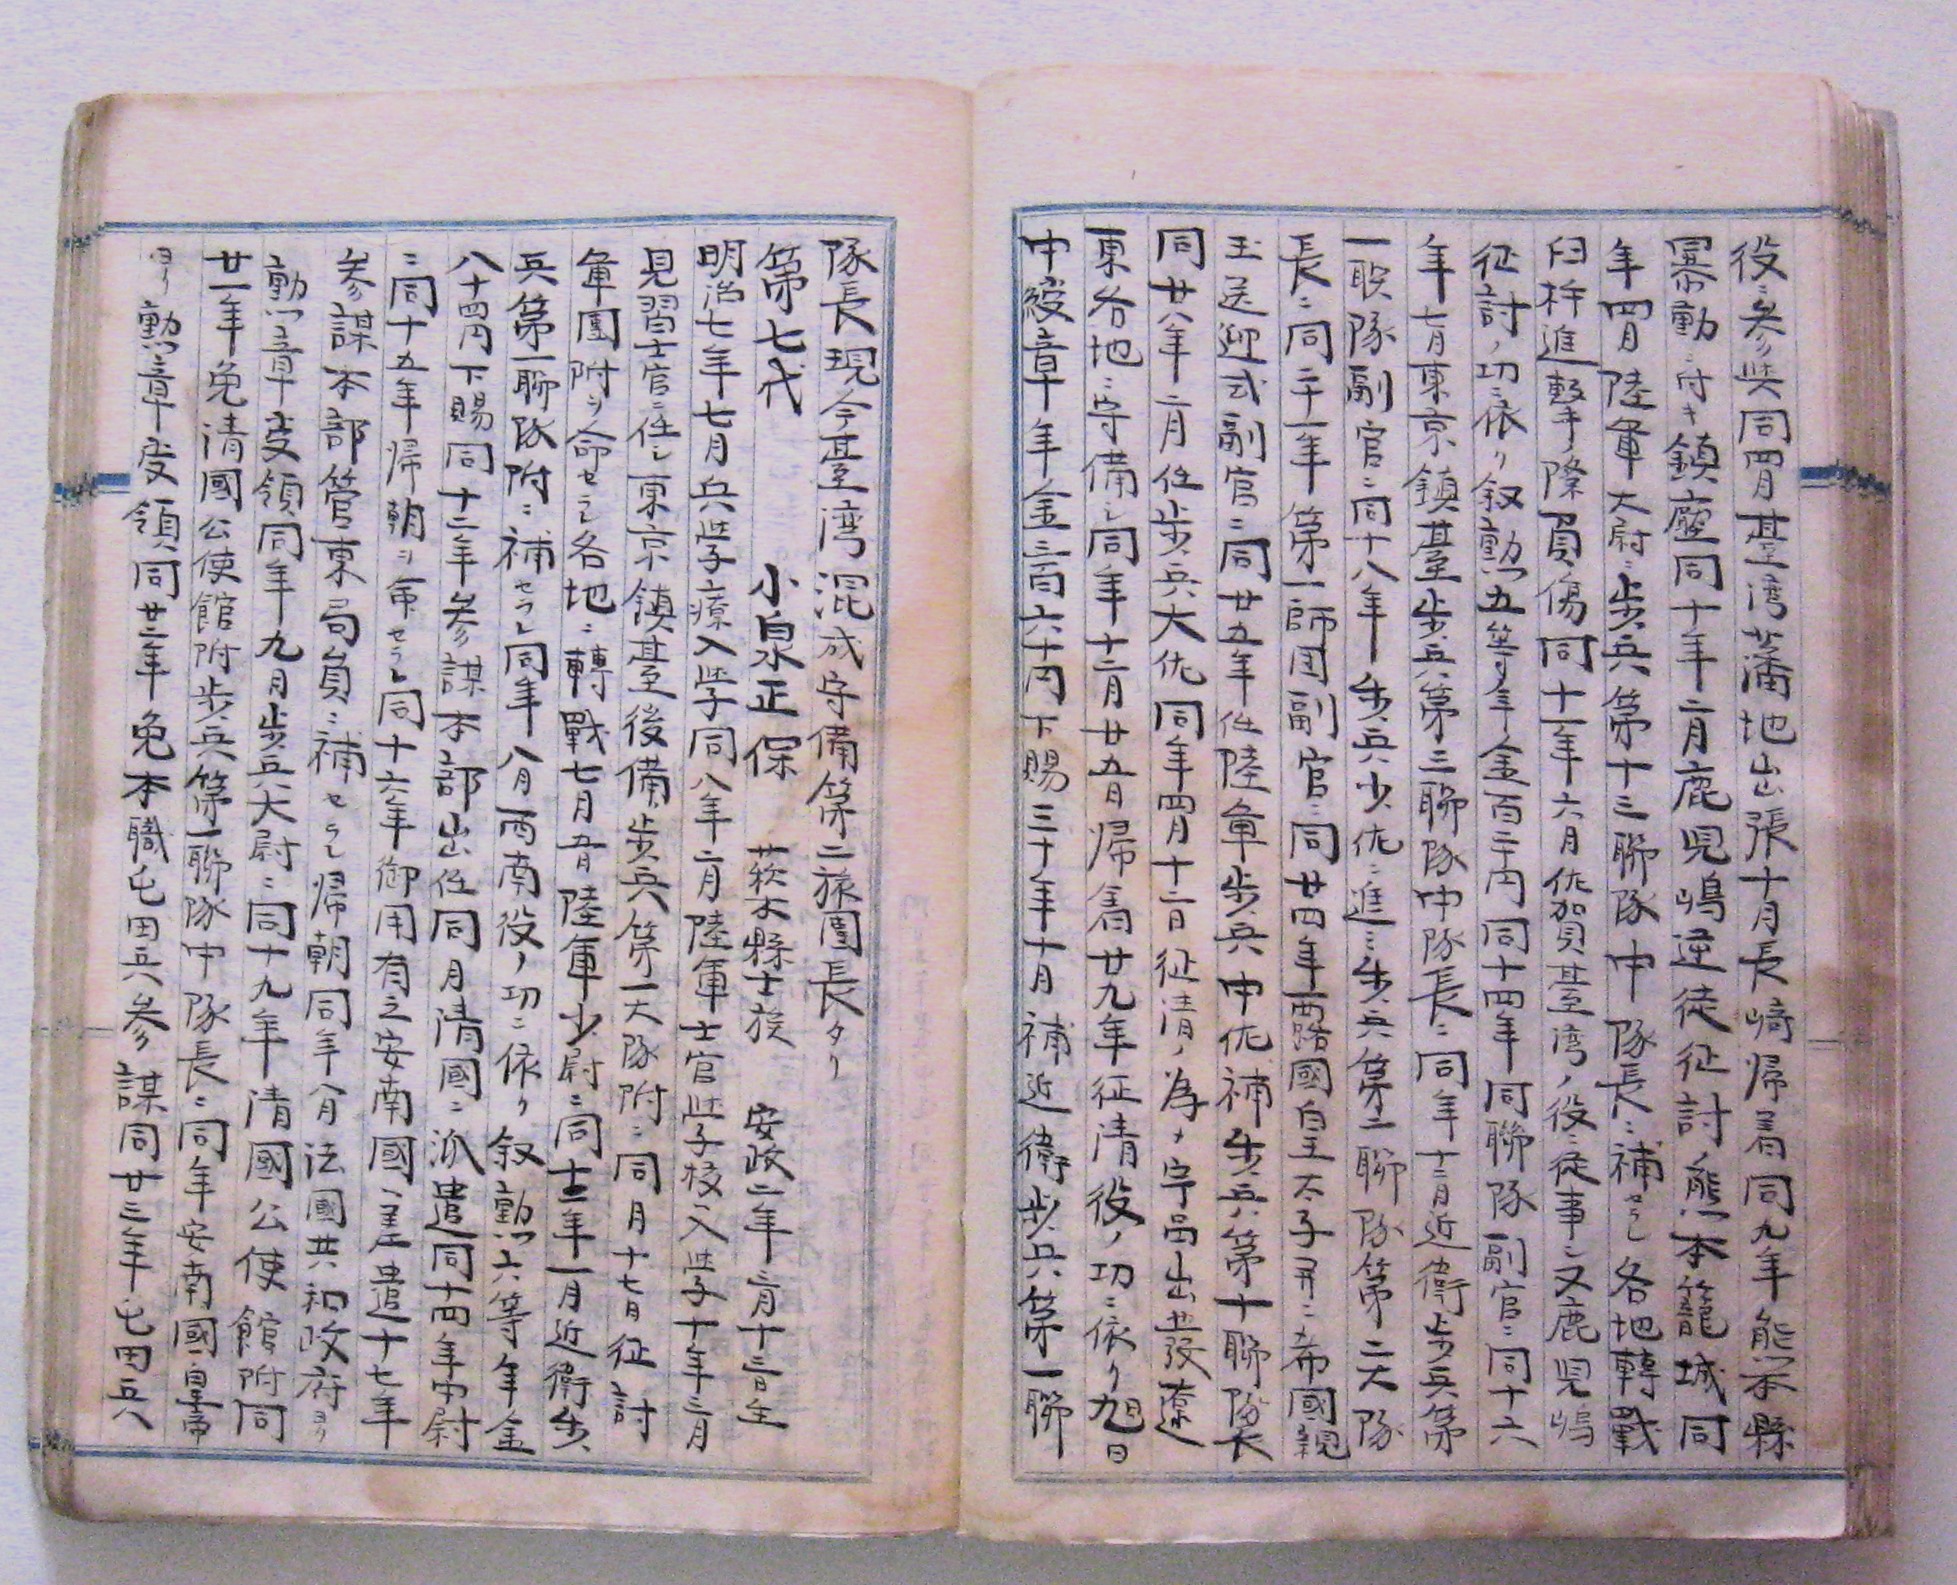 役ニ参与同四月臺湾藩地出張十月長﨑帰着同九年熊本縣
暴動ニ付キ鎮壓同十年二月鹿児嶋逆徒征討熊本籠城同
年四月陸軍大尉ニ歩兵第十三聯隊中隊長ニ補セラレ各地轉戰
臼杵進撃ノ際負傷同十一年六月佐賀臺湾ノ役ニ従事シ又鹿児嶋
征討ノ功ニ依リ叙勲五等年金百二十円同十四年同聯隊副官ニ同十六
年七月東京鎮臺歩兵第三聯隊中隊長ニ同年十二月近衛歩兵第
一聯隊副官ニ同十八年歩兵少佐ニ進ミ歩兵第二聯隊第二大隊
長ニ同二十一年第一師団副官ニ同廿四年露國皇太子并ニ希國親
王送迎式副官ニ同廿五年任陸軍歩兵中佐補歩兵第十聯隊長
同廿八年二月任歩兵大佐同年四月十二日征清ノ為メ宇品出発遼
東各地ニ守備シ同年十二月廿五日帰着廿九年征清役ノ功ニ依リ旭日
中綬章年金三百六十円下賜三十年十月補近衛歩兵第一聯
隊長現今臺湾混成守備第二旅團長タリ
第七代 小泉正保 茨木縣士族 安政二年三月十三日生
明治七年七月兵学療入学同八年二月陸軍士官学校ヘ入学十年三月
見習士官ニ任シ東京鎮臺後備歩兵第一大隊附ニ同月十七日征討
軍團附ヲ命セラレ各地ニ轉戰七月五日陸軍少尉ニ同十二年一月近衛歩
兵第一聯隊附ニ補セラレ同年八月西南役ノ功ニ依リ叙勲六等年金
八十四円下賜同十二年参謀本部出仕同月清國ニ派遣同十四年中尉
ニ同十五年帰朝ヲ命セラレ同十六年御用有之安南國ヘ差遣十七年
参謀本部管東局員ニ補セラレ帰朝同年八月法國共和政府ヨリ
勲章受領同年九月歩兵大尉ニ同十九年清國公使館附同
廿一年免清國公使館附歩兵第一聯隊中隊長ニ同年安南國皇帝
ヨリ勲章受領同廿二年免本職屯田兵参謀同廿三年屯田兵